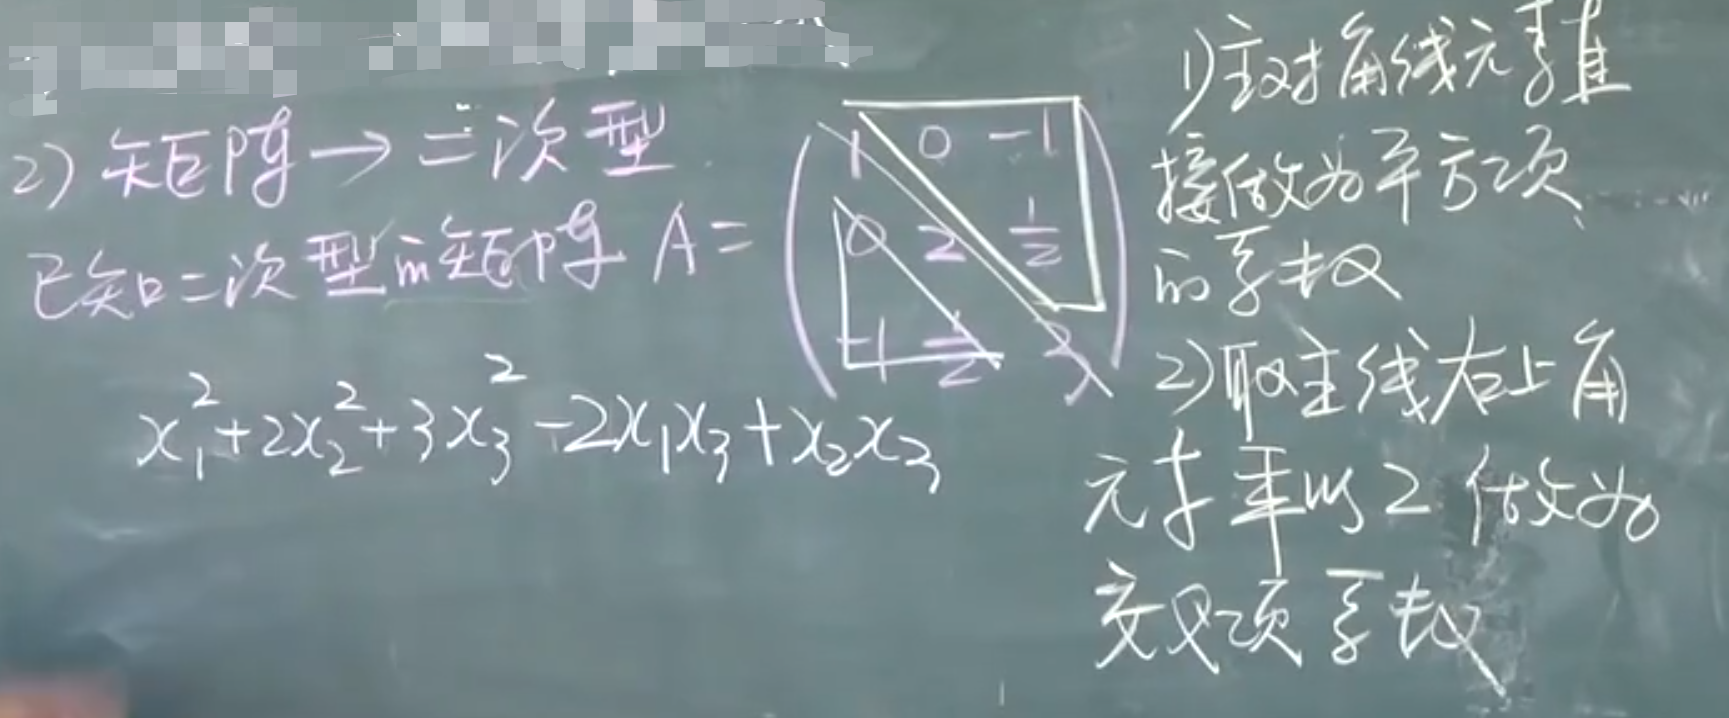 2) 矩阵→二次型
已知二次型的矩阵 A = ( 1 0 -1
0 2 1/2
-1 1/2 3 )
x₁²+2x₂²+3x₃²-2x₁x₃+x₂x₃
1)主对角线元素直
接做为平方项
的系数
2)取主线右上角
元素乘以2做为
交叉项系数